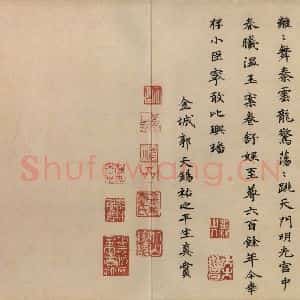 雝〻舞秦雲龍驚蕩〻跳天門明光宮中
春曦温玉案卷舒娛至尊六百餘年今幸
存小臣寧敢比璵璠
金城郭天錫祐之平生真賞
Shufawang.CN